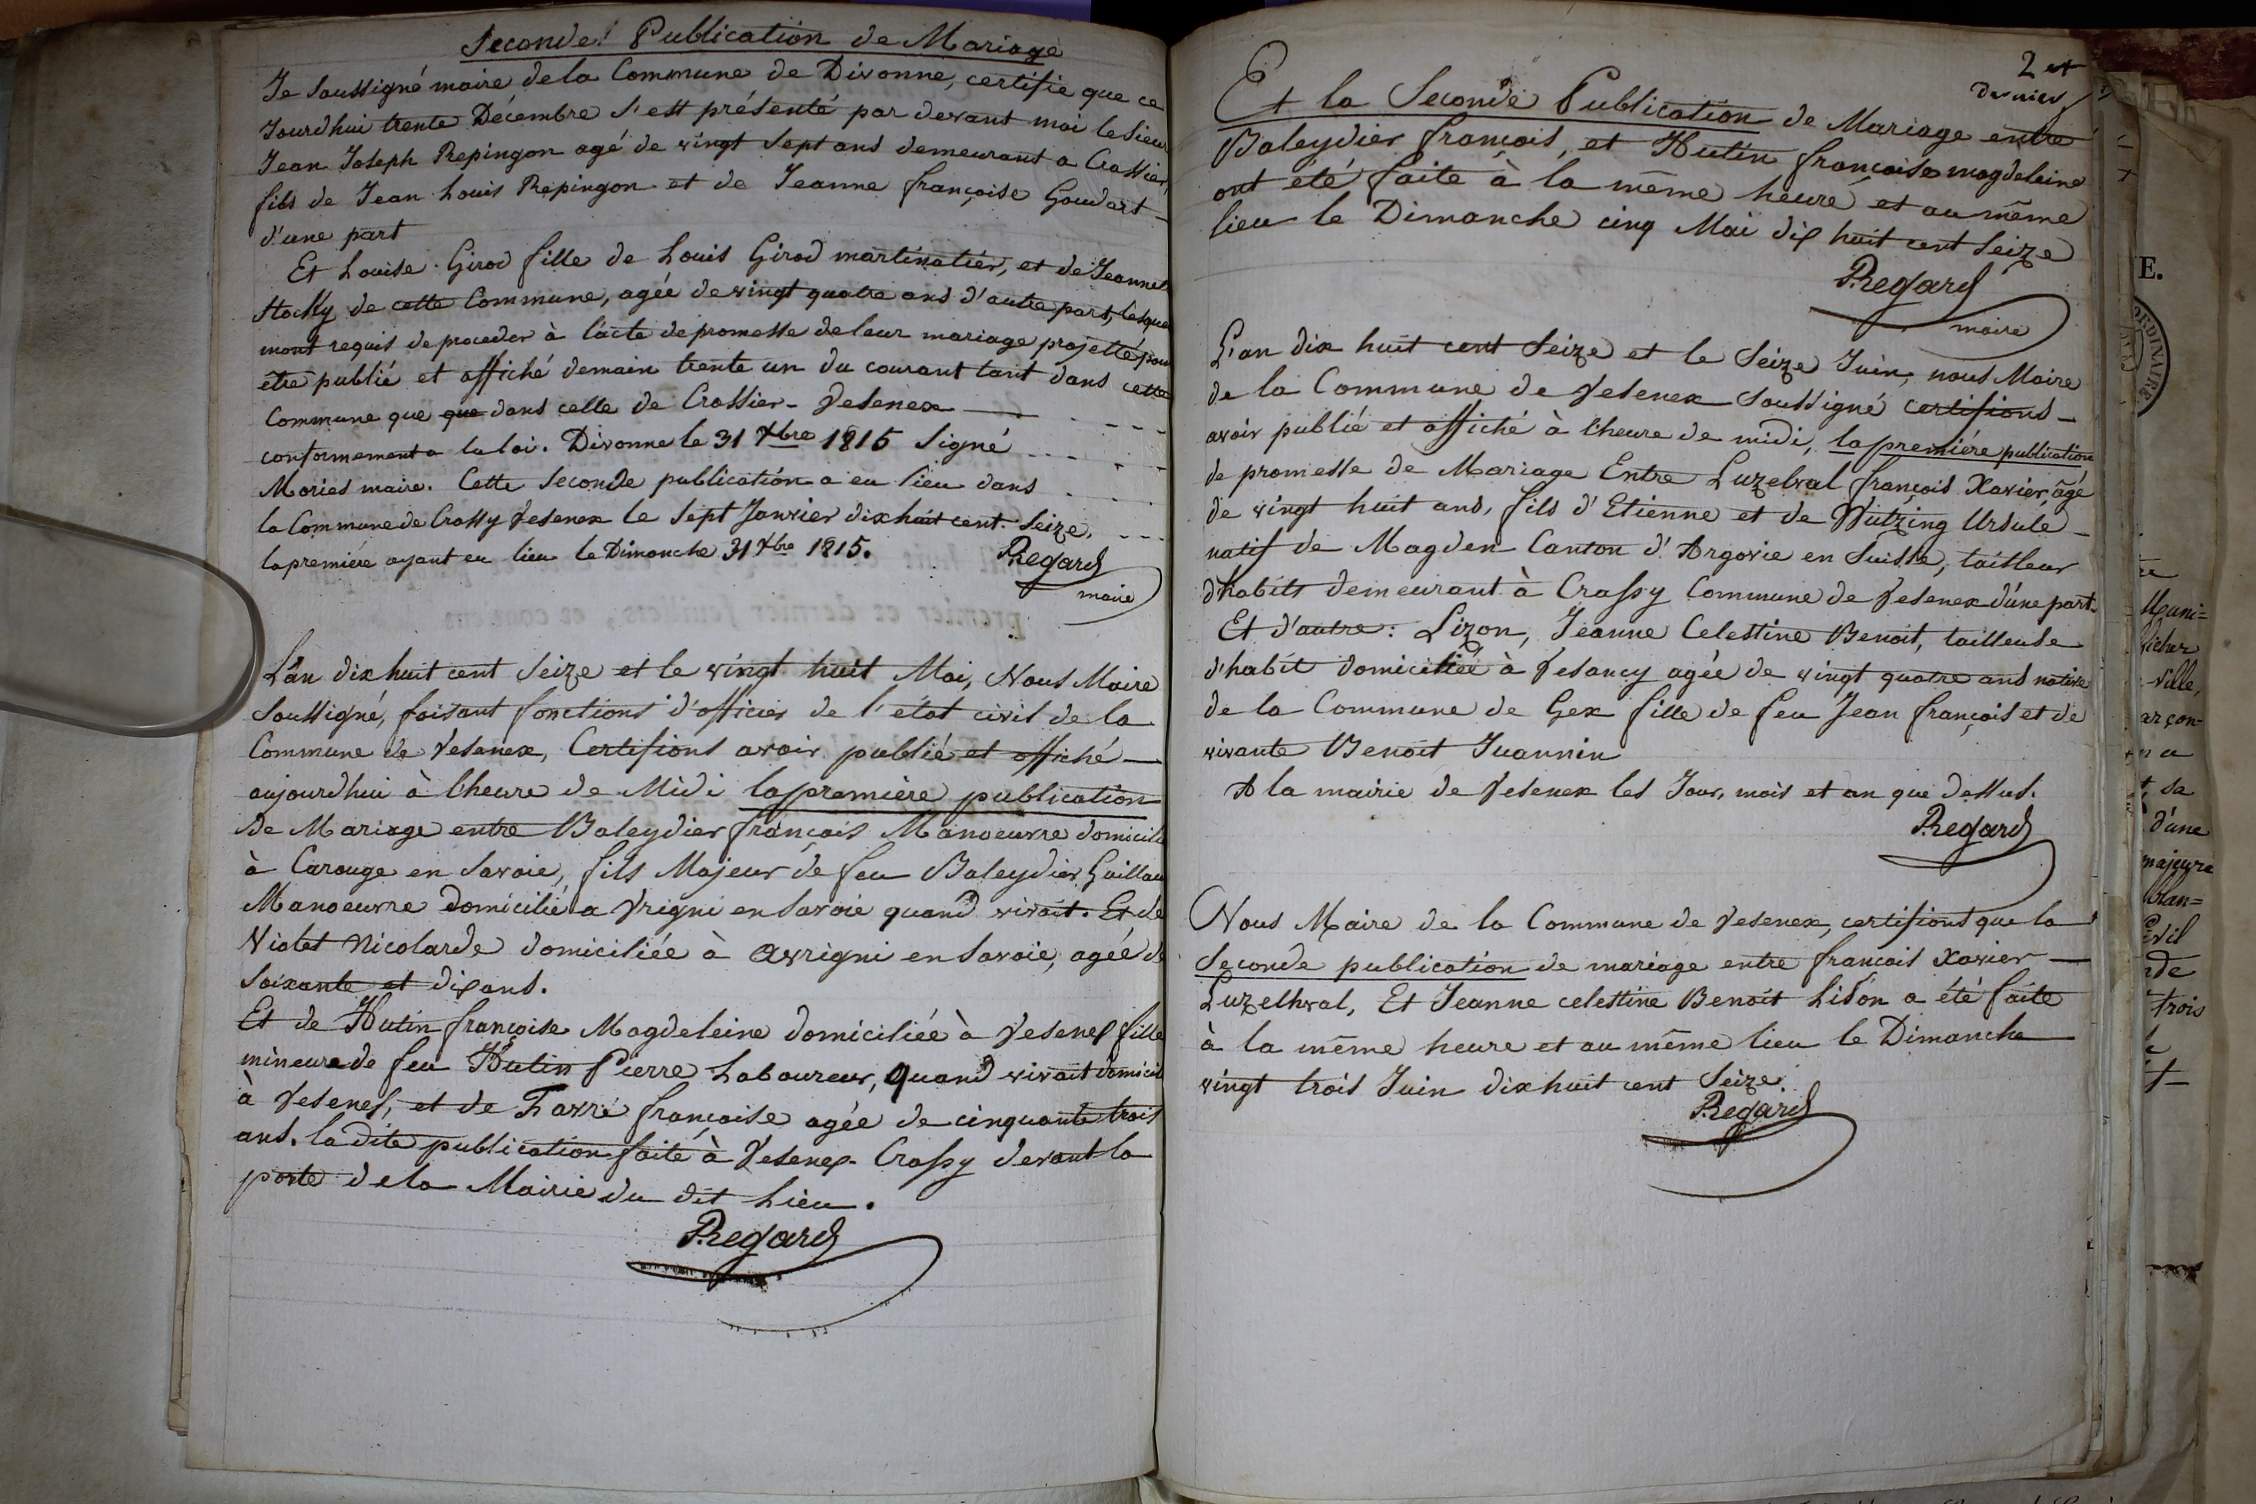 Seconde Publication de Mariage
Je soussigné maire de la Commune de Divonne, certifie que ce
Jourdhui trente Décembre s'est présenté par devant moi le sieur
Jean Joseph Repingon agé de vingt sept ans demeurant a Crassier,
fils de Jean Louis Repingon et de Jeanne françoise Goudart
d'une part
Et Louise Girod fille de Louis Girod martinatier, et de Jeannette
de cette Commune, agée de vingt quatre ans d'autre part, lesquels
mont requis de proceder à l'acte de promesse de leur mariage projetté pour
être publié et affiché demain trente un du courant tant dans cette
Commune que que dans celle de Crassier-Vesenex
conformement a la loi. Divonne le 31 Xbre 1815 Signé
Mories maire. Cette seconde publication a eu lieu dans
la Commune de Crassy Vesenex le sept Janvier dix huit cent seize,
la première ayant eu lieu le Dimanche 31 Xbre 1815.
Regard
maire
L'an dix huit cent seize et le vingt huit Mai, Nous Maire
soussigné, faisant fonctions d'officier de l'état civil de la
Commune de Vesenex, Certifions avoir publié et affiché
aujourdhui à l'heure de Midi la première publication
De Mariage entre Baleydier françois Manoeuvre domicilié
à Carouge en Savoie, fils Majeur de feu Baleydier Guillau
Manoeuvre Domicilié a Vrigni en Savoie quand vivait. Et de
Violet Nicolarde domiciliée à avrigni en Savoie, agée de
soixante et dix ans.
Et de Hutin françoise Magdeleine domiciliée à Vesenex fille
mineure de feu Hutin Pierre Laboureur, quand vivait domicil
à Vesenex, et de Favre françoise agée de cinquante trois
ans. la dite publication faite à Vesenex-Crassy devant la
porte de la Mairie du dit Lieu.
Regard
2 et
dernier
Et la Seconde Publication de Mariage entre
Baleydier françois, et Hutin françoise magdeleine
ont été faite à la même heure et au même
lieu le Dimanche cinq Mai dix huit cent seize
Regard
maire
L'an dix huit cent seize et le seize Juin, nous Maire
de la Commune de Vesenex soussigné certifions
avoir publié et affiché à l'heure de midi, la première publication
de promesse de Mariage Entre Luzelval françois Xavier, agé
de vingt huit ans, fils d'Etienne et de Wutzing Ursule
natif de Magden Canton d'Argovie en Suisse, tailleur
d'habits demeurant à Crassy Commune de Vesenex d'une part.
Et d'autre : Lizon, Jeanne Celestine Benoit, tailleuse
d'habit domiciliée à Vesancy agée de vingt quatre ans native
de la Commune de Gex fille de feu Jean françois et de
vivante Benoit Juannin
A la mairie de Vesenex les Jour, mois et an que dessus.
Regard
Nous Maire de la Commune de Vesenex, certifions que la
Seconde publication de mariage entre françois Xavier
Luzelhval, Et Jeanne celestine Benoit Lison a été faite
à la même heure et au même lieu le Dimanche
vingt trois Juin dix huit cent seize.
Regard
E.
ORDINAIRE
ville,
d'une
majeure
trois